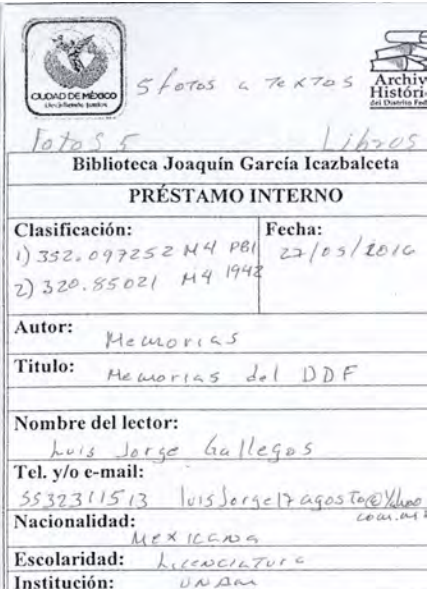 CIUDAD DE MÉXICO
Decidiendo juntos
5 fotos a textos
Archivo
Históri
del Distrito Fed
Fotos 5 Libros
Biblioteca Joaquín García Icazbalceta
PRÉSTAMO INTERNO
Clasificación:
1) 352.097252 M4 PBI
2) 320.85021 M4 1942
Fecha:
27/05/2016
Autor:
Memorias
Titulo:
Memorias del DDF
Nombre del lector:
Luis Jorge Gallegos
Tel. y/o e-mail:
5532311513 luisjorge17agosto@Yahoo
com.mx
Nacionalidad:
Mexicana
Escolaridad: Licenciatura
Institución: UNAM